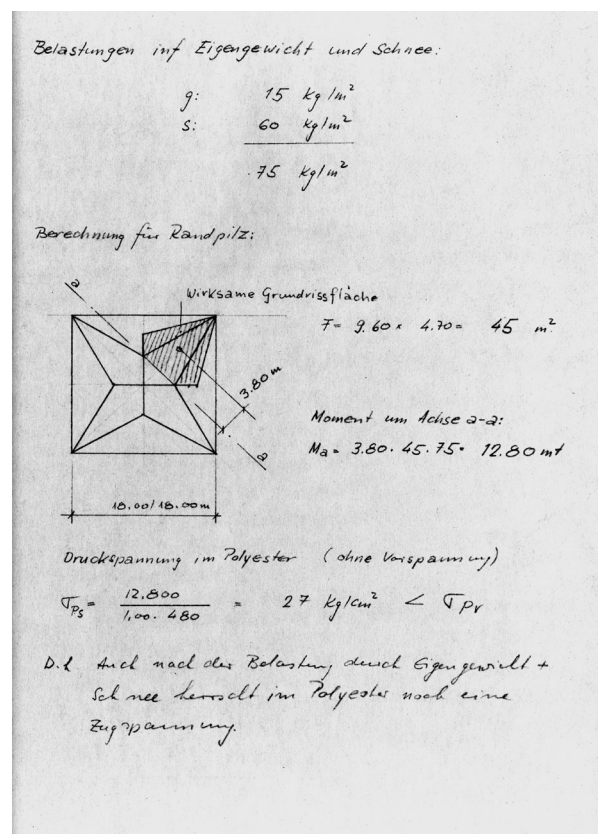 Belastungen inf Eigengewicht und Schnee:
g: 15 kg/m²
s: 60 kg/m²
75 kg/m²
Berechnung für Randpilz:
a
Wirksame Grundrissfläche
F = 9.60 x 4.70 = 45 m²
3.80 m
Moment um Achse a-a:
a
Ma = 3.80 · 45 · 75 = 12.80 mt
18.00/18.00 m
Druckspannung im Polyester (ohne Vorspannung)
σPs = 12.800 / 1,00 · 480 = 27 kg/cm² < σPv
D.h. Auch nach der Belastung durch Eigengewicht +
Schnee herrscht im Polyester noch eine
Zugspannung.